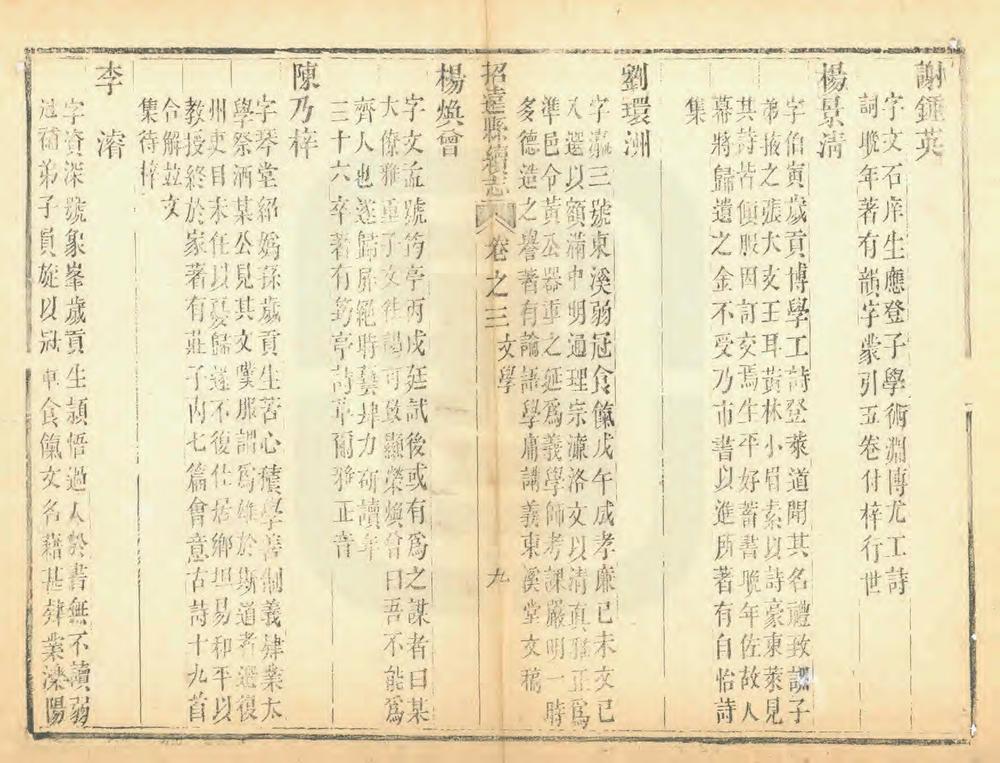 謝鍾英
字文石庠生應登子學術淵博尤工詩
詞晚年著有韻字彙引五卷付梓行世
楊景清
字伯寅歲貢博學工詩登萊道聞其名禮致課子
弟掖之張大文王耳黃林小眉素以詩豪東萊見
其詩皆傾服因訂交焉生平好蓄書晚年佐故人
幕將歸遺之金不受乃市書以進所著有自怡詩
集
劉環洲
字瀛三號東溪弱冠食餼戊午成孝廉己未文已
入選以額滿中明通理宗濂洛文以清真雅正為
準邑令黃公器重之延為義學師考課嚴明一時
多德造之譽著有論語學庸講義東溪堂文稿
招遠縣續志 卷之三 文學 九
楊煥曾
字文孟號筠亭丙戌廷試後或有為之謀者曰某
大僚雅重子文往謁可致顯榮煥曾曰吾不能為
齊人也遂歸屏絕時藝肆力研讀年
三十六卒著有筠亭詩草爾雅正音
陳乃梓
字琴堂紹媯孫歲貢生苦心積學善制義肄業太
學祭酒某公見其文嘆服謂為雄於斯道者選復
州吏目未任以憂歸遂不復仕居鄉坦易和平以
教授終於家著有莊子內七篇會意古詩十九首
合解並文
集待梓
李濬
字資深號象峯歲貢生穎悟過人於書無不讀弱
冠補弟子員旋以冠軍食餼文名藉甚肄業濼陽